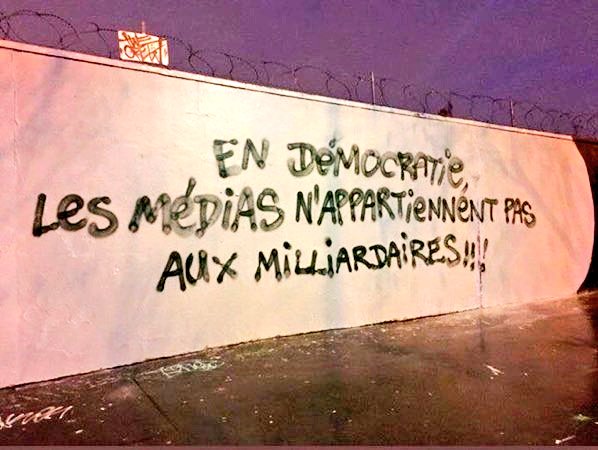 EN DÉMOCRATIE,
LES MÉDIAS N'APPARTIENNENT PAS
AUX MILLIARDAIRES!!!